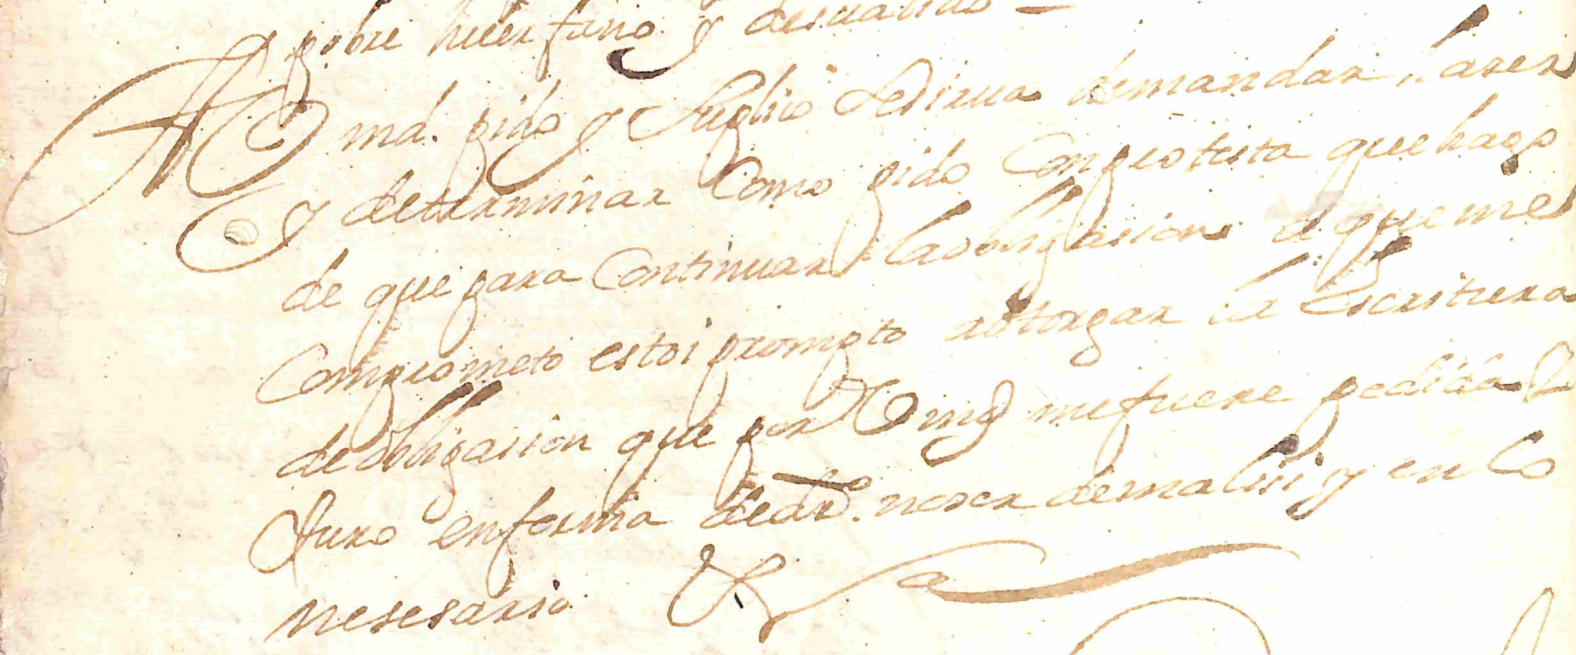 pobre huerfano y desualido
A Vmd. pido y suplico se Sirua demandar, haser
y determinar Como pido Con protesta que hago
de que para Continuar la obligasion a que me
Comprometo estoi prompto a otorgar la Escritura
de obligasion que por Vmd me fuere pedida y
Juro en forma de dro. no ser de malisi y en lo
nesesario &a